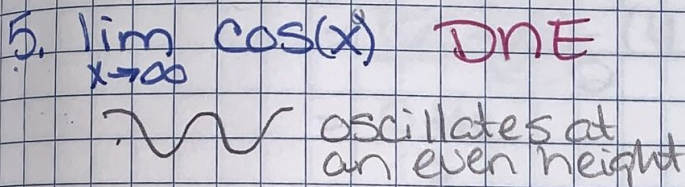 5. lim cos(x) DNE
x→∞
oscillates at
an even height